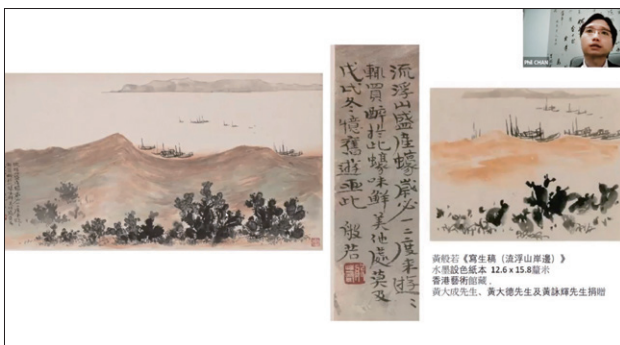 Phil CHAN
流浮山盛產蠔歲必一二度來遊〻
輒買醉於此蠔味鮮美他處莫及
戊戌冬憶舊遊画此 般若
黃般若《寫生稿（流浮山岸邊）》
水墨設色紙本 12.6 x 15.8厘米
香港藝術館藏，
黃大成先生、黃大德先生及黃詠輝先生捐贈